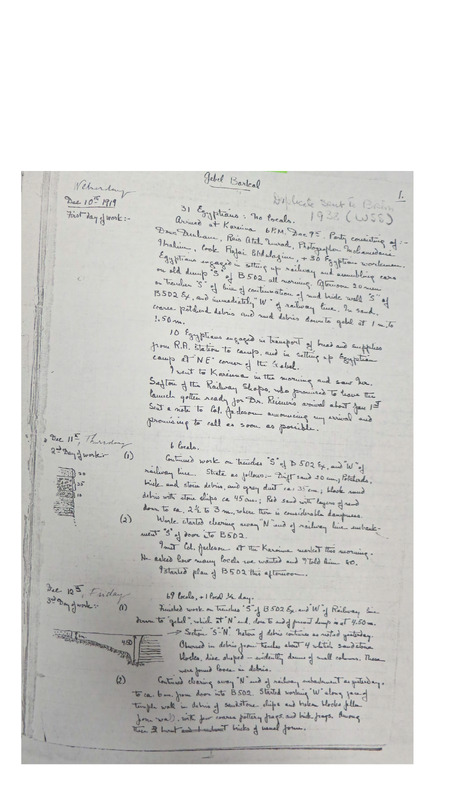 Gebel Barkal
1.
Wednesday
Dec 10th 1919
First day of work:-
Duplicate sent to Boston
1938 (WSS)
31 Egyptians: No locals.
Arrived at Kareima 6 P.M. Dec 9th. Party consisting of:-
Dows Dunham, Reis
Ibrahim, cook + 30 Egyptian workmen.
Egyptians engaged in setting up railway and assembling cars
on old dump "S" of B 502 all morning. Afternoon 20 men
on trenches "S" of line of continuation of mud brick wall "S" of
B 502 Ex, and immediately "W" of railway line. In sand,
coarse potsherd debris and mud debris down to gebel at 1 m. to
1.50 m.
10 Egyptians engaged in transport of bread and supplies
from R.R. Station to camp, and in setting up Egyptian
camp at "NE" corner of the
I went to Kareima in the morning and saw Mr.
of the Railway Shops, who promised to have the
launch gotten ready for Dr. Reisner's arrival about Jan 1st
Sent a note to Col. Jackson announcing my arrival and
promising to call as soon as possible.
Dec 11th, Thursday
2nd Day of work:-
(1)
6 locals.
Continued work on trenches "S" of B 502 Ex, and "W" of
railway line. Strata as follows:- Drift sand 20 cm; Potsherds,
brick and stone debris, and grey dust ca. 35 cm; black mud
debris with stone chips ca. 45 cm; Red sand with layers of mud
down to ca. 2½ to 3 m, where there is considerable dampness.
(2)
Work started clearing away "N" end of railway line embank-
ment "S" of door into B 502.
I met Col. Jackson at the Kareima market this morning.
He asked how many locals we wanted and I told him 60.
I started plan of B 502 this afternoon.
Dec 12th, Friday
3rd Day of work:-
(1)
69 locals, + 1 local ½ day.
Finished work on trenches "S" of B 502 Ex and "W" of Railway line
down to "gebel", which at "N" end, close to end of ground dump is at 4.50 m.
4.50
→ Section "S-N". Nature of debris continues as noted yesterday.
Observed in debris from trenches about 4 whitish sandstone
blocks, disc shaped – evidently drums of small columns. These
were found loose in debris.
(2)
Continued clearing away "N" end of railway embankment as yesterday,
to ca. 6 m. from door into B 502. Started working "W" along face of
temple wall in debris of sandstone chips and broken blocks fallen
from wall, with few coarse pottery frags and brick frags. Among
these 2 burnt and 1 unburnt bricks of usual form.